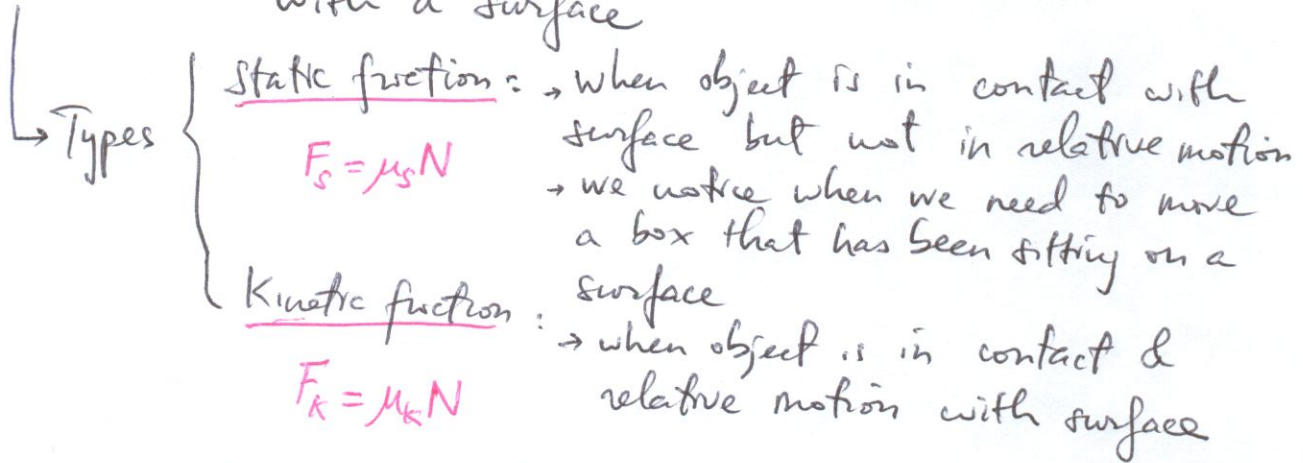 with a surface
→ Types
Static friction : → when object is in contact with
surface but not in relative motion
F_S = μ_S N
→ we notice when we need to move
a box that has been sitting on a
surface
Kinetic friction :
→ when object is in contact &
F_K = μ_K N
relative motion with surface